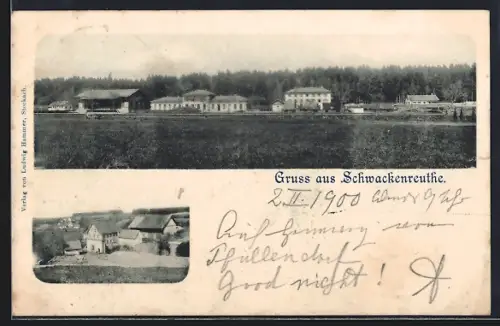 Verlag von Ludwig Hammer, Stockach.
Gruss aus Schwackenreuthe.
2. II. 1900 Abends 9 Uhr
Auf von
Pfullendorf
Good night!